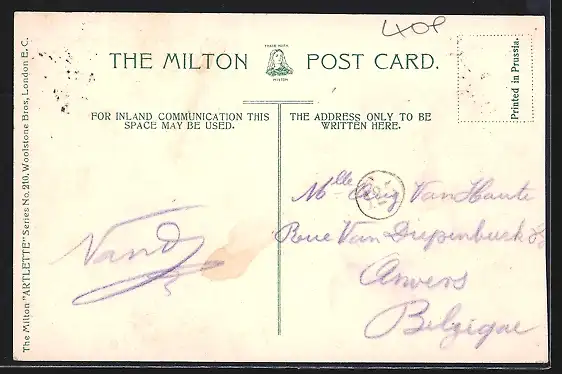 40P
THE MILTON POST CARD.
TRADE MARK
MILTON
Printed in Prussia.
FOR INLAND COMMUNICATION THIS
SPACE MAY BE USED.
THE ADDRESS ONLY TO BE
WRITTEN HERE.
Mlle Van Haute
Rue Van Diepenbeeck
Anvers
Belgique
The Milton "ARTLETTE" Series No. 210, Woolstone Bros., London E. C.